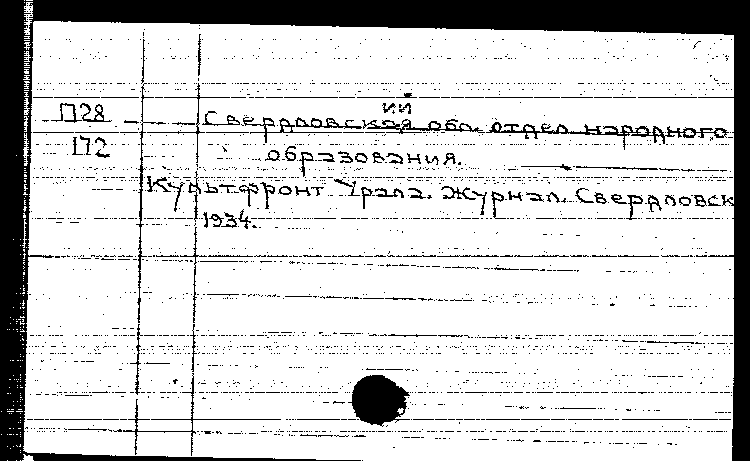 П28
172
Свердловская обл. отдел народного
ий
образования.
Культфронт Урала. Журнал. Свердловск
1934.